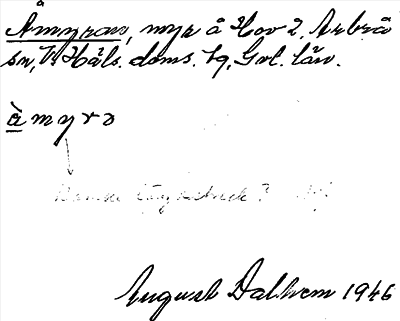 Åmyran, myr å Hov 2, Arbrå
sn, V. Häls. doms. tg, Gvl. län.
å̀myrɔ
August Dalhem 1946